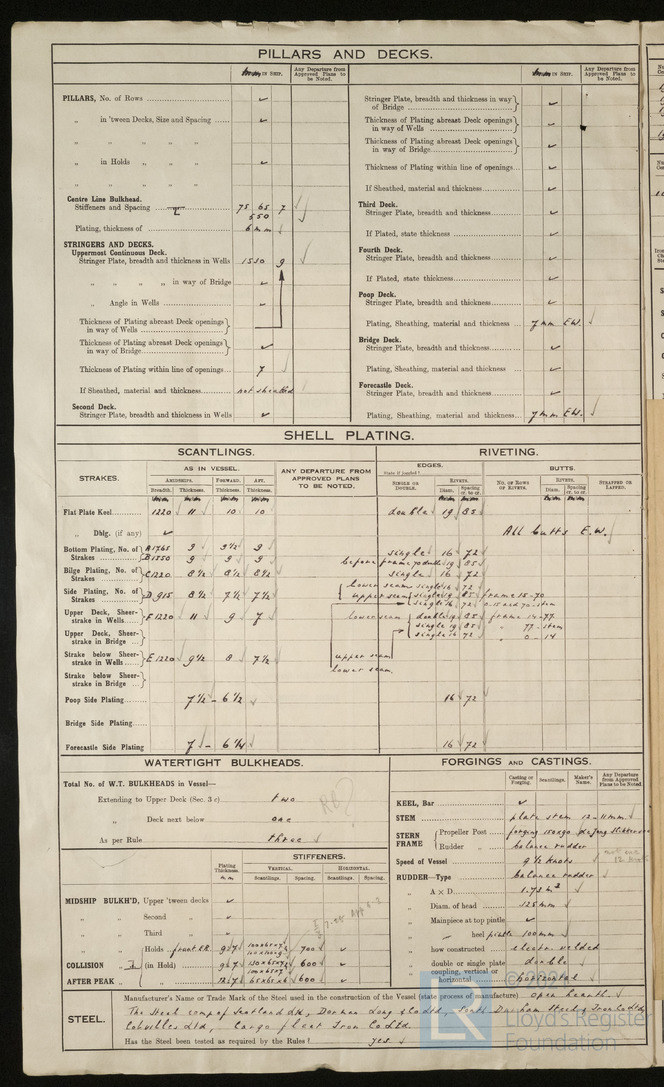 PILLARS AND DECKS.
IN SHIP. Any Departure from Approved Plans to be Noted. IN SHIP. Any Departure from Approved Plans to be Noted.
PILLARS, No. of Rows
„ in 'tween Decks, Size and Spacing
„ „ „ „ „
„ in Holds „ „
„ „ „ „ „
Centre Line Bulkhead.
Stiffeners and Spacing 75 65 7
550
Plating, thickness of 6 mm
STRINGERS AND DECKS.
Uppermost Continuous Deck.
Stringer Plate, breadth and thickness in Wells 1530 9
„ „ „ „ in way of Bridge
„ Angle in Wells
Thickness of Plating abreast Deck openings in way of Wells
Thickness of Plating abreast Deck openings in way of Bridge
Thickness of Plating within line of openings 7
If Sheathed, material and thickness not sheathed
Second Deck.
Stringer Plate, breadth and thickness in Wells
Stringer Plate, breadth and thickness in way of Bridge
Thickness of Plating abreast Deck openings in way of Wells
Thickness of Plating abreast Deck openings in way of Bridge
Thickness of Plating within line of openings
If Sheathed, material and thickness
Third Deck.
Stringer Plate, breadth and thickness
If Plated, state thickness
Fourth Deck.
Stringer Plate, breadth and thickness
If Plated, state thickness
Poop Deck.
Stringer Plate, breadth and thickness
Plating, Sheathing, material and thickness 7 mm E.W.
Bridge Deck.
Stringer Plate, breadth and thickness
Plating, Sheathing, material and thickness
Forecastle Deck.
Stringer Plate, breadth and thickness
Plating, Sheathing, material and thickness 7 mm E.W.
SHELL PLATING.
SCANTLINGS. RIVETING.
STRAKES. AS IN VESSEL. ANY DEPARTURE FROM APPROVED PLANS TO BE NOTED. EDGES. BUTTS.
AMIDSHIPS. FORWARD. AFT. SINGLE OR DOUBLE. RIVETS. No. OF ROWS OF RIVETS. RIVETS. STRAPPED OR LAPPED.
Breadth. Thickness. Thickness. Thickness. Diam. Spacing cr. to cr. Diam. Spacing cr. to cr.
Flat Plate Keel 1220 11 10 10 double 19 85
„ Dblg. (if any) All butts E.W.
Bottom Plating, No. of Strakes A 1765 9 9½ 9 single 16 72
B 1550 9 9 9 before frame 70 double 19 85
Bilge Plating, No. of Strakes C 1220 8½ 8½ 8½ single 16 72
Side Plating, No. of Strakes D 915 8½ 7½ 7½ lower seam single 16 72
upper seam single 19 85 frame 15-70
single 16 72 0-15 and 70-stem
Upper Deck, Sheerstrake in Wells F 1220 11 9 7 lower seam double 19 85 frame 14-77
single 19 85 „ 77-stem
Upper Deck, Sheerstrake in Bridge single 16 72 „ 0-14
Strake below Sheerstrake in Wells E 1220 9½ 8 7½ upper seam
Strake below Sheerstrake in Bridge lower seam
Poop Side Plating 7½ - 6½ 16 72
Bridge Side Plating
Forecastle Side Plating 7 - 6¼ 16 72
WATERTIGHT BULKHEADS.
Total No. of W.T. BULKHEADS in Vessel—
Extending to Upper Deck (Sec. 3 c) two
„ Deck next below one
As per Rule three
Plating Thickness. STIFFENERS.
VERTICAL. HORIZONTAL.
Scantlings. Spacing. Scantlings. Spacing.
MIDSHIP BULKH'D, Upper 'tween decks
„ „ Second „
„ „ Third „
„ „ Holds 700
COLLISION „ (in Hold) 600
AFTER PEAK „ „ 65x65x6 600
FORGINGS AND CASTINGS.
Casting or Forging. Scantlings. Maker's Name. Any Departure from Approved Plans to be Noted
KEEL, Bar
STEM plate stem 12-11mm
STERN FRAME Propeller Post forging 150x90
Rudder „ balance rudder
Speed of Vessel 9½ knots
RUDDER—Type balance rudder
„ A × D 1.73 m²
„ Diam. of head 125 mm
„ Mainpiece at top pintle
„ „ heel pintle 100 mm
„ how constructed electric welded
„ double or single plate double
„ coupling, vertical or horizontal horizontal
STEEL. Manufacturer's Name or Trade Mark of the Steel used in the construction of the Vessel (state process of manufacture) open hearth.
The Steel comp of Scotland Ltd, Dorman Long & Co Ltd, South Durham Steel & Iron Co Ltd
Colvilles Ltd, Cargo fleet Iron Co Ltd.
Has the Steel been tested as required by the Rules? yes.
Lloyd's Register
Foundation